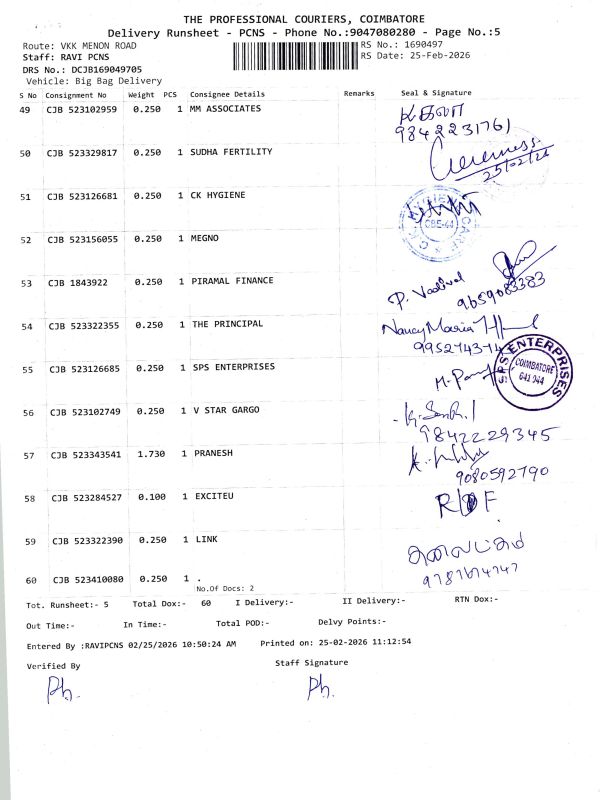 THE PROFESSIONAL COURIERS, COIMBATORE
Delivery Runsheet - PCNS - Phone No.:9047080280 - Page No.:5
Route: VKK MENON ROAD
RS No.: 1690497
Staff: RAVI PCNS
RS Date: 25-Feb-2026
DRS No.: DCJB169049705
Vehicle: Big Bag Delivery
S No Consignment No Weight PCS Consignee Details Remarks Seal & Signature
49 CJB 523102959 0.250 1 MM ASSOCIATES
9842231761
50 CJB 523329817 0.250 1 SUDHA FERTILITY
25/02/26
51 CJB 523126681 0.250 1 CK HYGIENE
CBE-44
52 CJB 523156055 0.250 1 MEGNO
53 CJB 1843922 0.250 1 PIRAMAL FINANCE
P. Vadivel
9659083383
54 CJB 523322355 0.250 1 THE PRINCIPAL
Nancy Maria
55 CJB 523126685 0.250 1 SPS ENTERPRISES
SPS ENTERPRISES
COIMBATORE
641 044
56 CJB 523102749 0.250 1 V STAR GARGO
9842229345
57 CJB 523343541 1.730 1 PRANESH
9080592790
58 CJB 523284527 0.100 1 EXCITEU
59 CJB 523322390 0.250 1 LINK
60 CJB 523410080 0.250 1 .
No.Of Docs: 2
Tot. Runsheet:- 5 Total Dox:- 60 I Delivery:- II Delivery:- RTN Dox:-
Out Time:- In Time:- Total POD:- Delvy Points:-
Entered By :RAVIPCNS 02/25/2026 10:50:24 AM Printed on: 25-02-2026 11:12:54
Verified By Staff Signature
Ph. Ph.